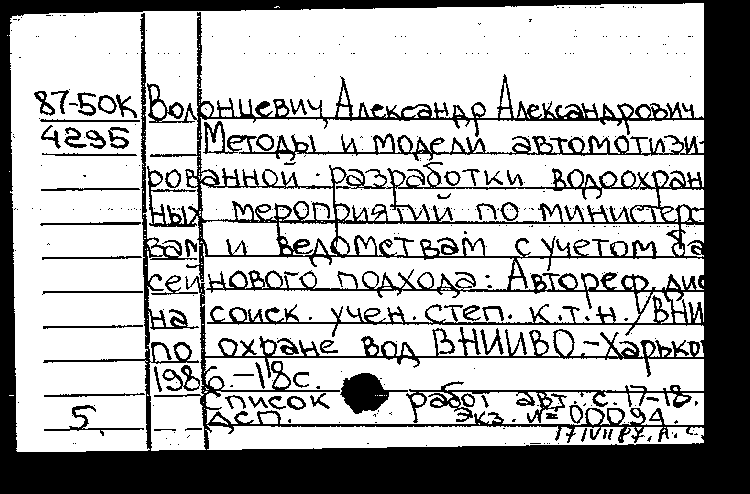 87-50К Волонцевич, Александр Александрович.
4295 Методы и модели автомотизи-
рованной разработки водоохран
ных мероприятий по министерс
вам и ведомствам с учетом ба
сейнового подхода: Автореф. дис
на соиск. учен. степ. к.т.н. / ВНИ
по охране вод ВНИИВО.-Харьков
1986.-18с.
Список работ авт.: с. 17-18.
5. ДСП. Экз. № 00094.
17 IVII 87. А. С.